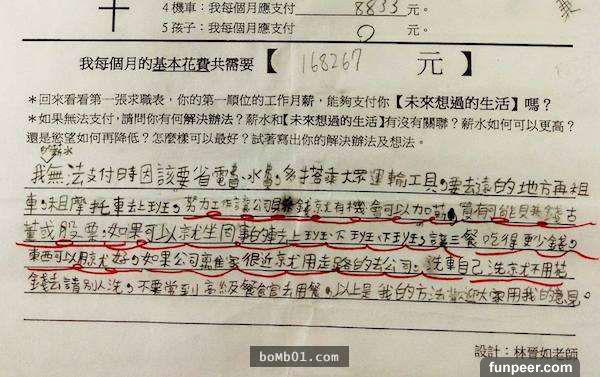 4 機車：我每個月應支付 8833 元。
5 孩子：我每個月應支付 0 元。
我每個月的基本花費共需要【 168267 元 】
*回來看看第一張求職表，你的第一順位的工作月薪，能夠支付你【未來想過的生活】嗎？
*如果無法支付，請問你有何解決辦法？薪水和【未來想過的生活】有沒有關聯？薪水如何可以更高？
還是慾望如何再降低？怎麼樣可以最好？試著寫出你的解決辦法及想法。
我無法支付時因該要省電費、水費。多搭乘大眾運輸工具。要去遠的地方再租
車。租摩托車去上班。努力工作讓公司 錢就有機會可以加薪。買有可能 錢古
董或股票。如果可以就坐 的車去上班、下班。三餐吃得 少錢。
東西可以用就好。如果公司離 家很近就用走路的去公司。洗車自己洗就不用花
錢去請別人洗。不要常到高級餐 去用餐。以上是我的方法歡迎大家用我的意見。
設計：林晉如老師
boMb01.com
funpeer.com